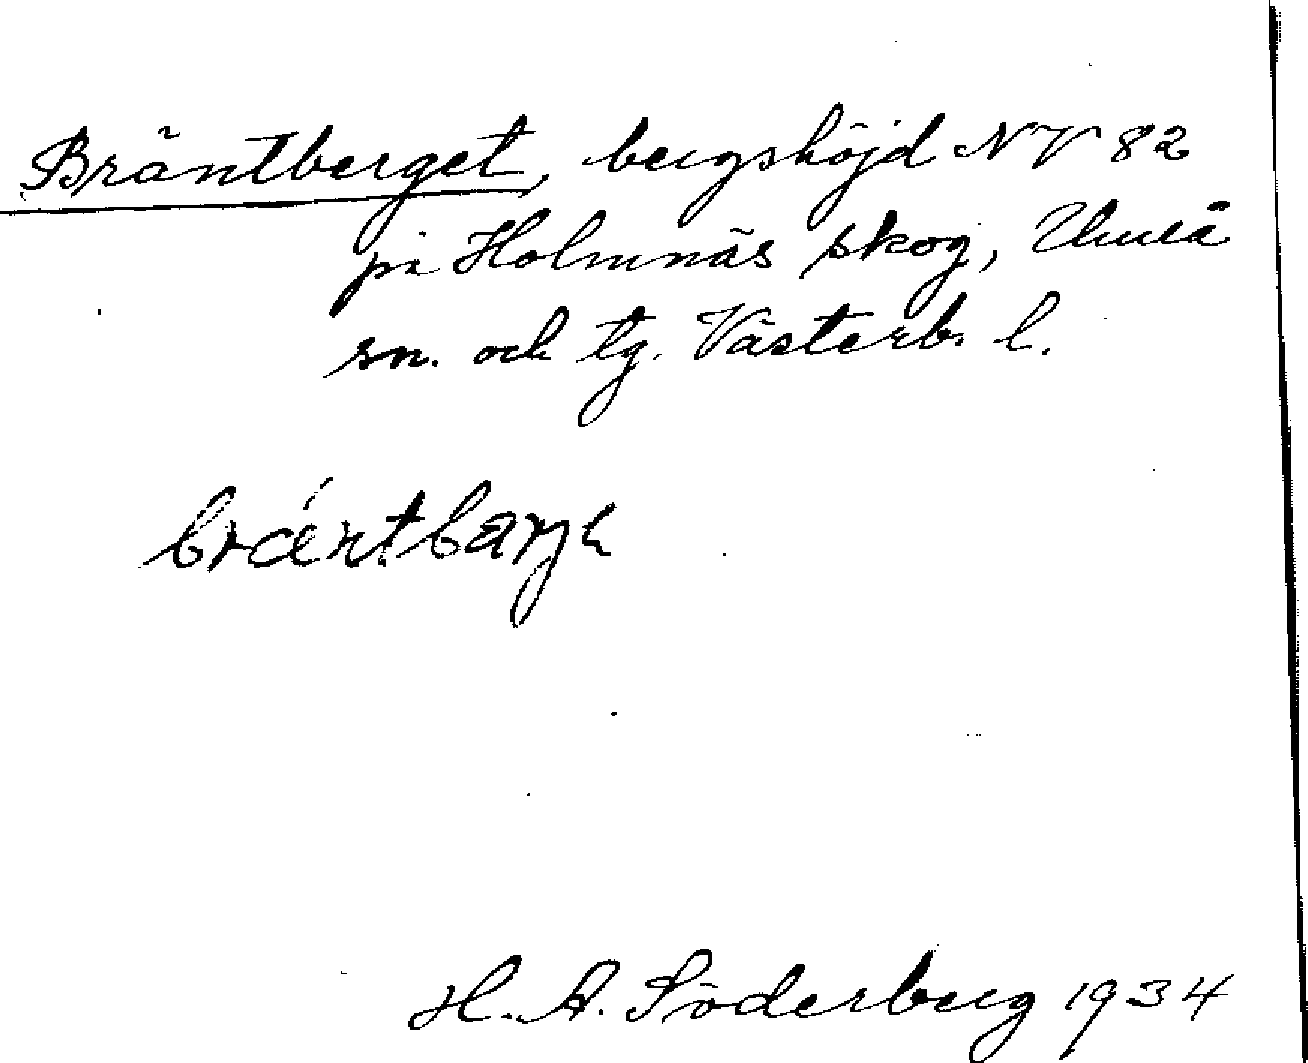 Bräntberget, bergshöjd NV 82
på Holmnäs skog, Umeå
sn. och tg. Västerb. l.
H. A. Söderberg 1934